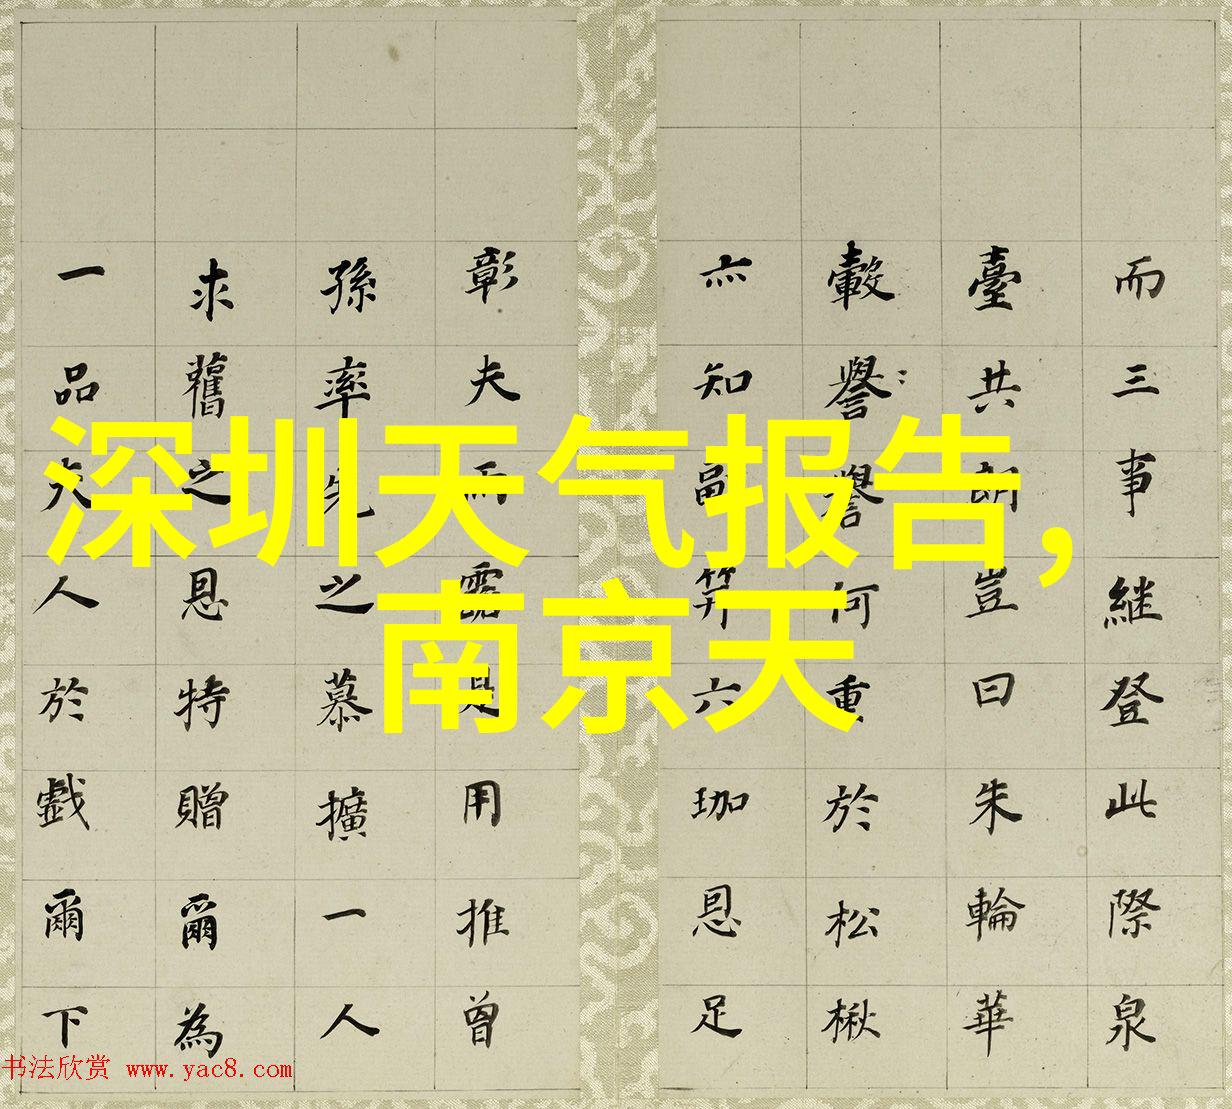 深圳天气报告，
南京天
而三事継登此際泉
臺共豈曰朱輪華
轂譽譽何重於松楸
亦知副笄六珈恩足
彰夫而是用推曾
孫率先之慕擴一人
求舊之恩特贈爾為
一品夫人於戲爾下
书法欣赏 www.yac8.com